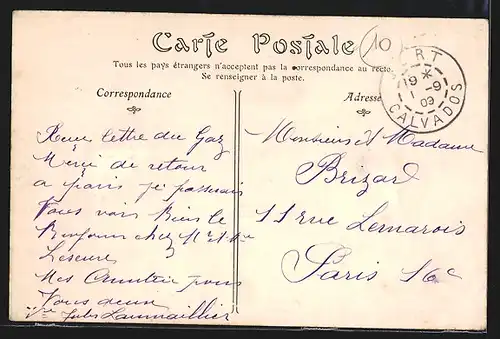 Carte Postale
10
Tous les pays étrangers n'acceptent pas la correspondance au recto.
Se renseigner à la poste.
Correspondance
Adresse
19 *
1 -9
09
CALVADOS
lettre du Gaz
Merci de retour
a paris je passerais
Vous voir Bien le
Bonjour chez Mr et Me
Leseure
Mes pour
Vous deux
Jules
Monsieur et Madame
Brizard
11 rue Lemarois
Paris 16e